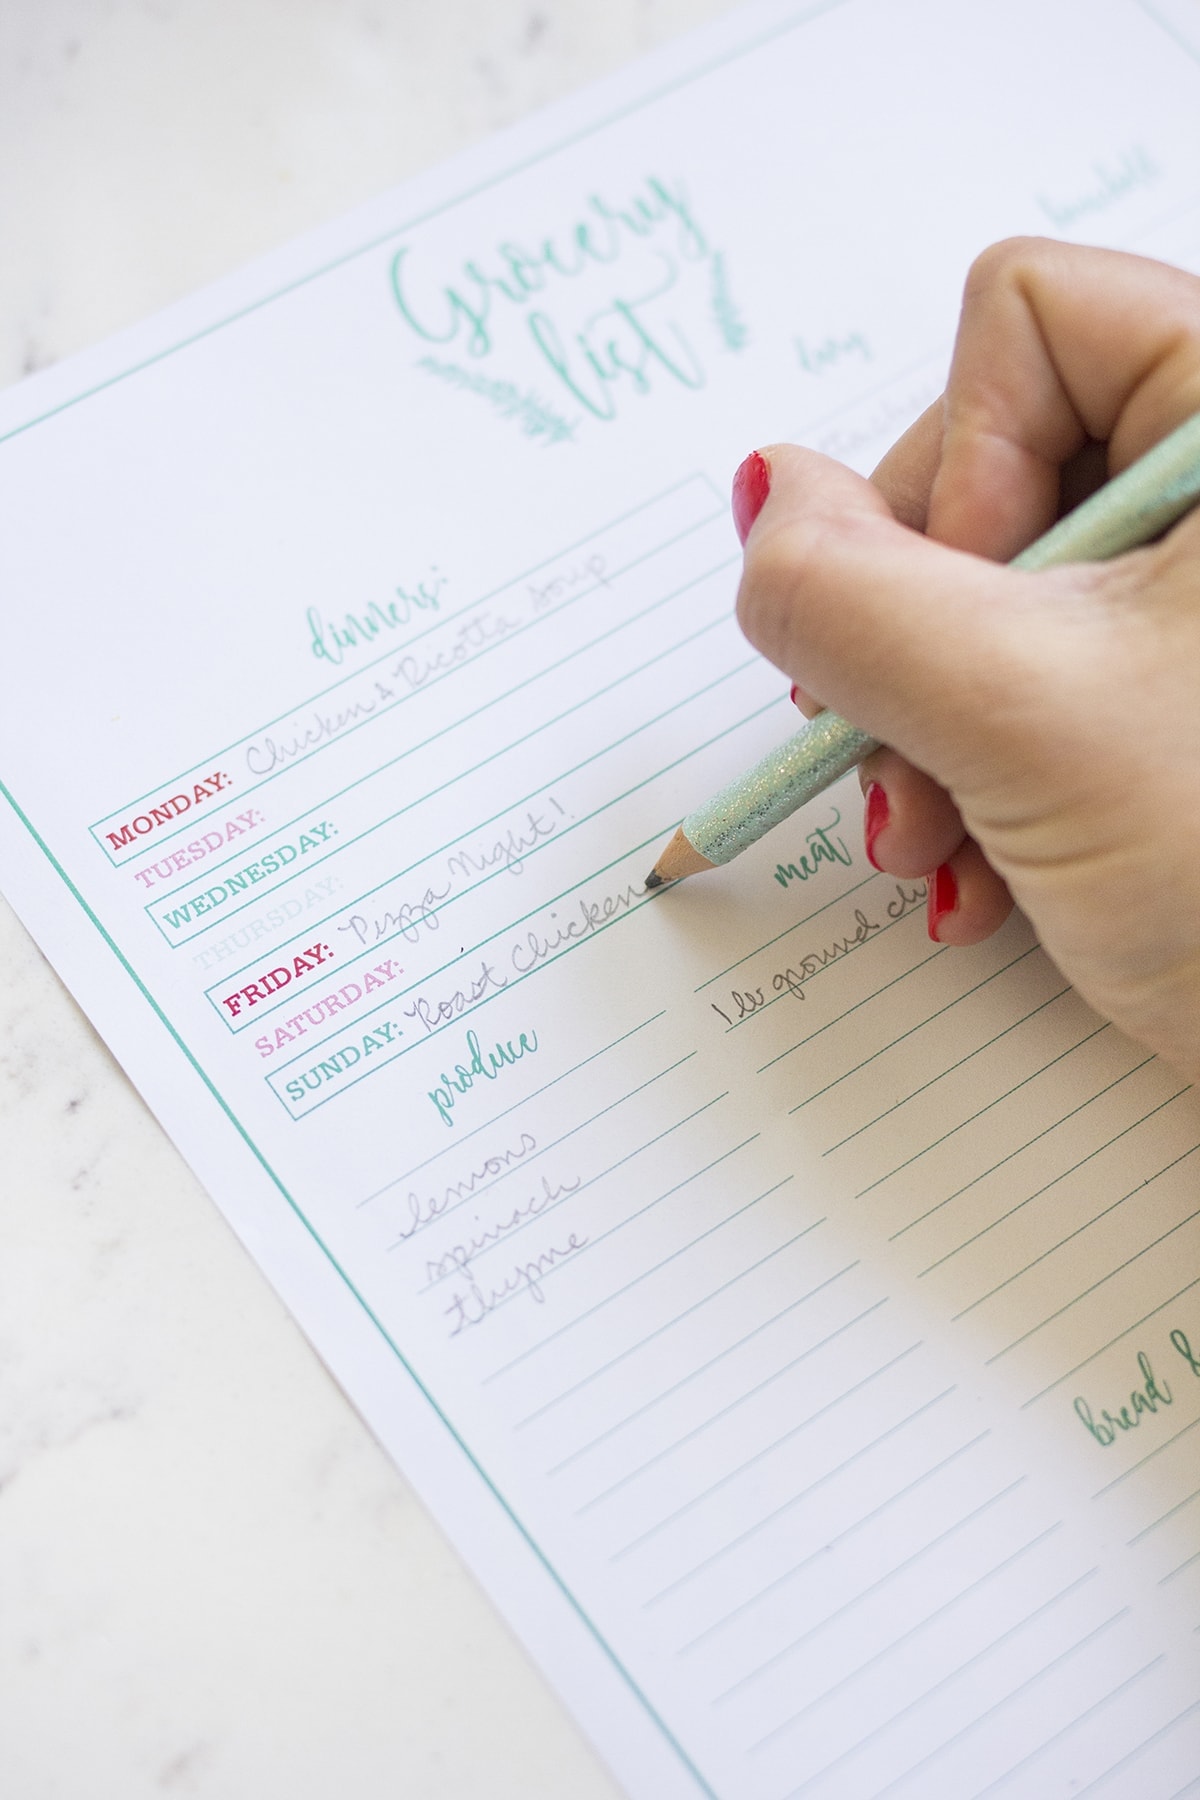 Grocery
list
household
dairy
dinners:
MONDAY: Chicken & Ricotta Soup
TUESDAY:
WEDNESDAY:
THURSDAY:
FRIDAY: Pizza Night!
SATURDAY:
SUNDAY: Roast Chicken
produce
lemons
spinach
thyme
meat
1 lb ground
bread &